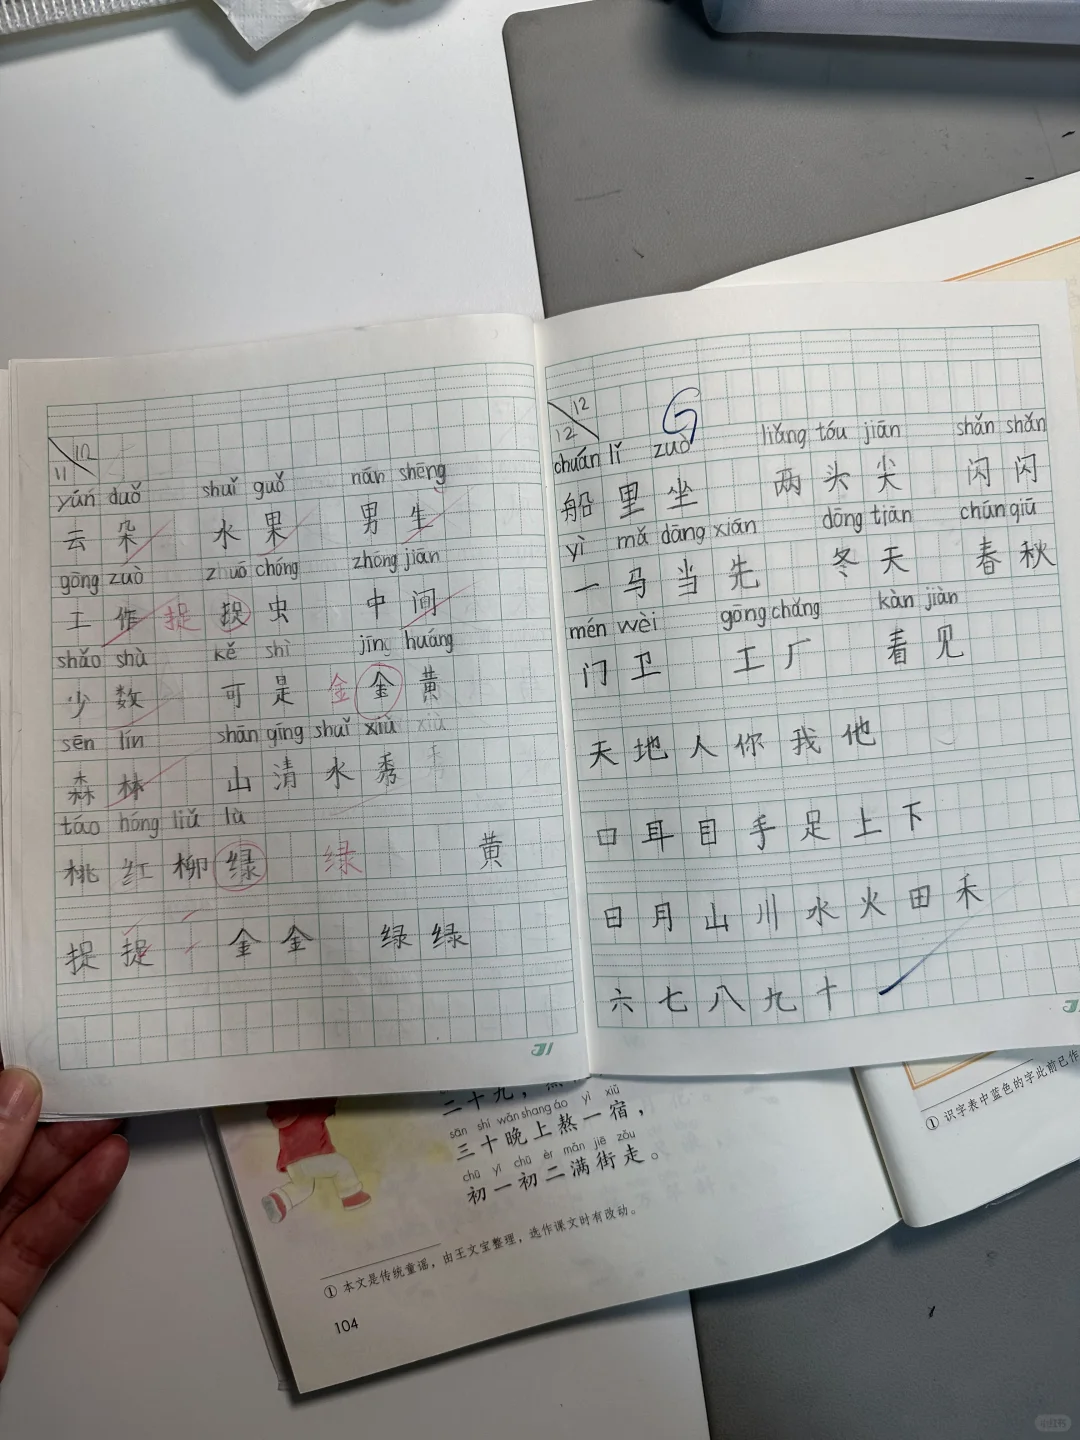 12
11
yún duǒ shuǐ guǒ nán shēng
云朵 水果 男生
gōng zuò zhuō chóng zhōng jiān
工作 捉 捉虫 中间
shǎo shù kě shì jīn huáng
少数 可是 金 金黄
sēn lín shān qīng shuǐ xiù xiù
森林 山清水秀 秀
táo hóng liǔ lǜ
桃红柳绿 绿 黄
捉捉 金金 绿绿
J1
12
12
chuán lǐ zuò liǎng tóu jiān shǎn shǎn
船里坐 两头尖 闪闪
yì mǎ dāng xiān dōng tiān chūn qiū
一马当先 冬天 春秋
mén wèi gōng chǎng kàn jiàn
门卫 工厂 看见
天地人你我他
口耳目手足上下
日月山川水火田禾
六七八九十
二十九，
sān shí wǎn shang áo yì xiǔ
三十晚上熬一宿，
chū yī chū èr mǎn jiē zǒu
初一初二满街走。
① 本文是传统童谣，由王文宝整理，选作课文时有改动。
104
① 识字表中蓝色的字此前已作
小红书